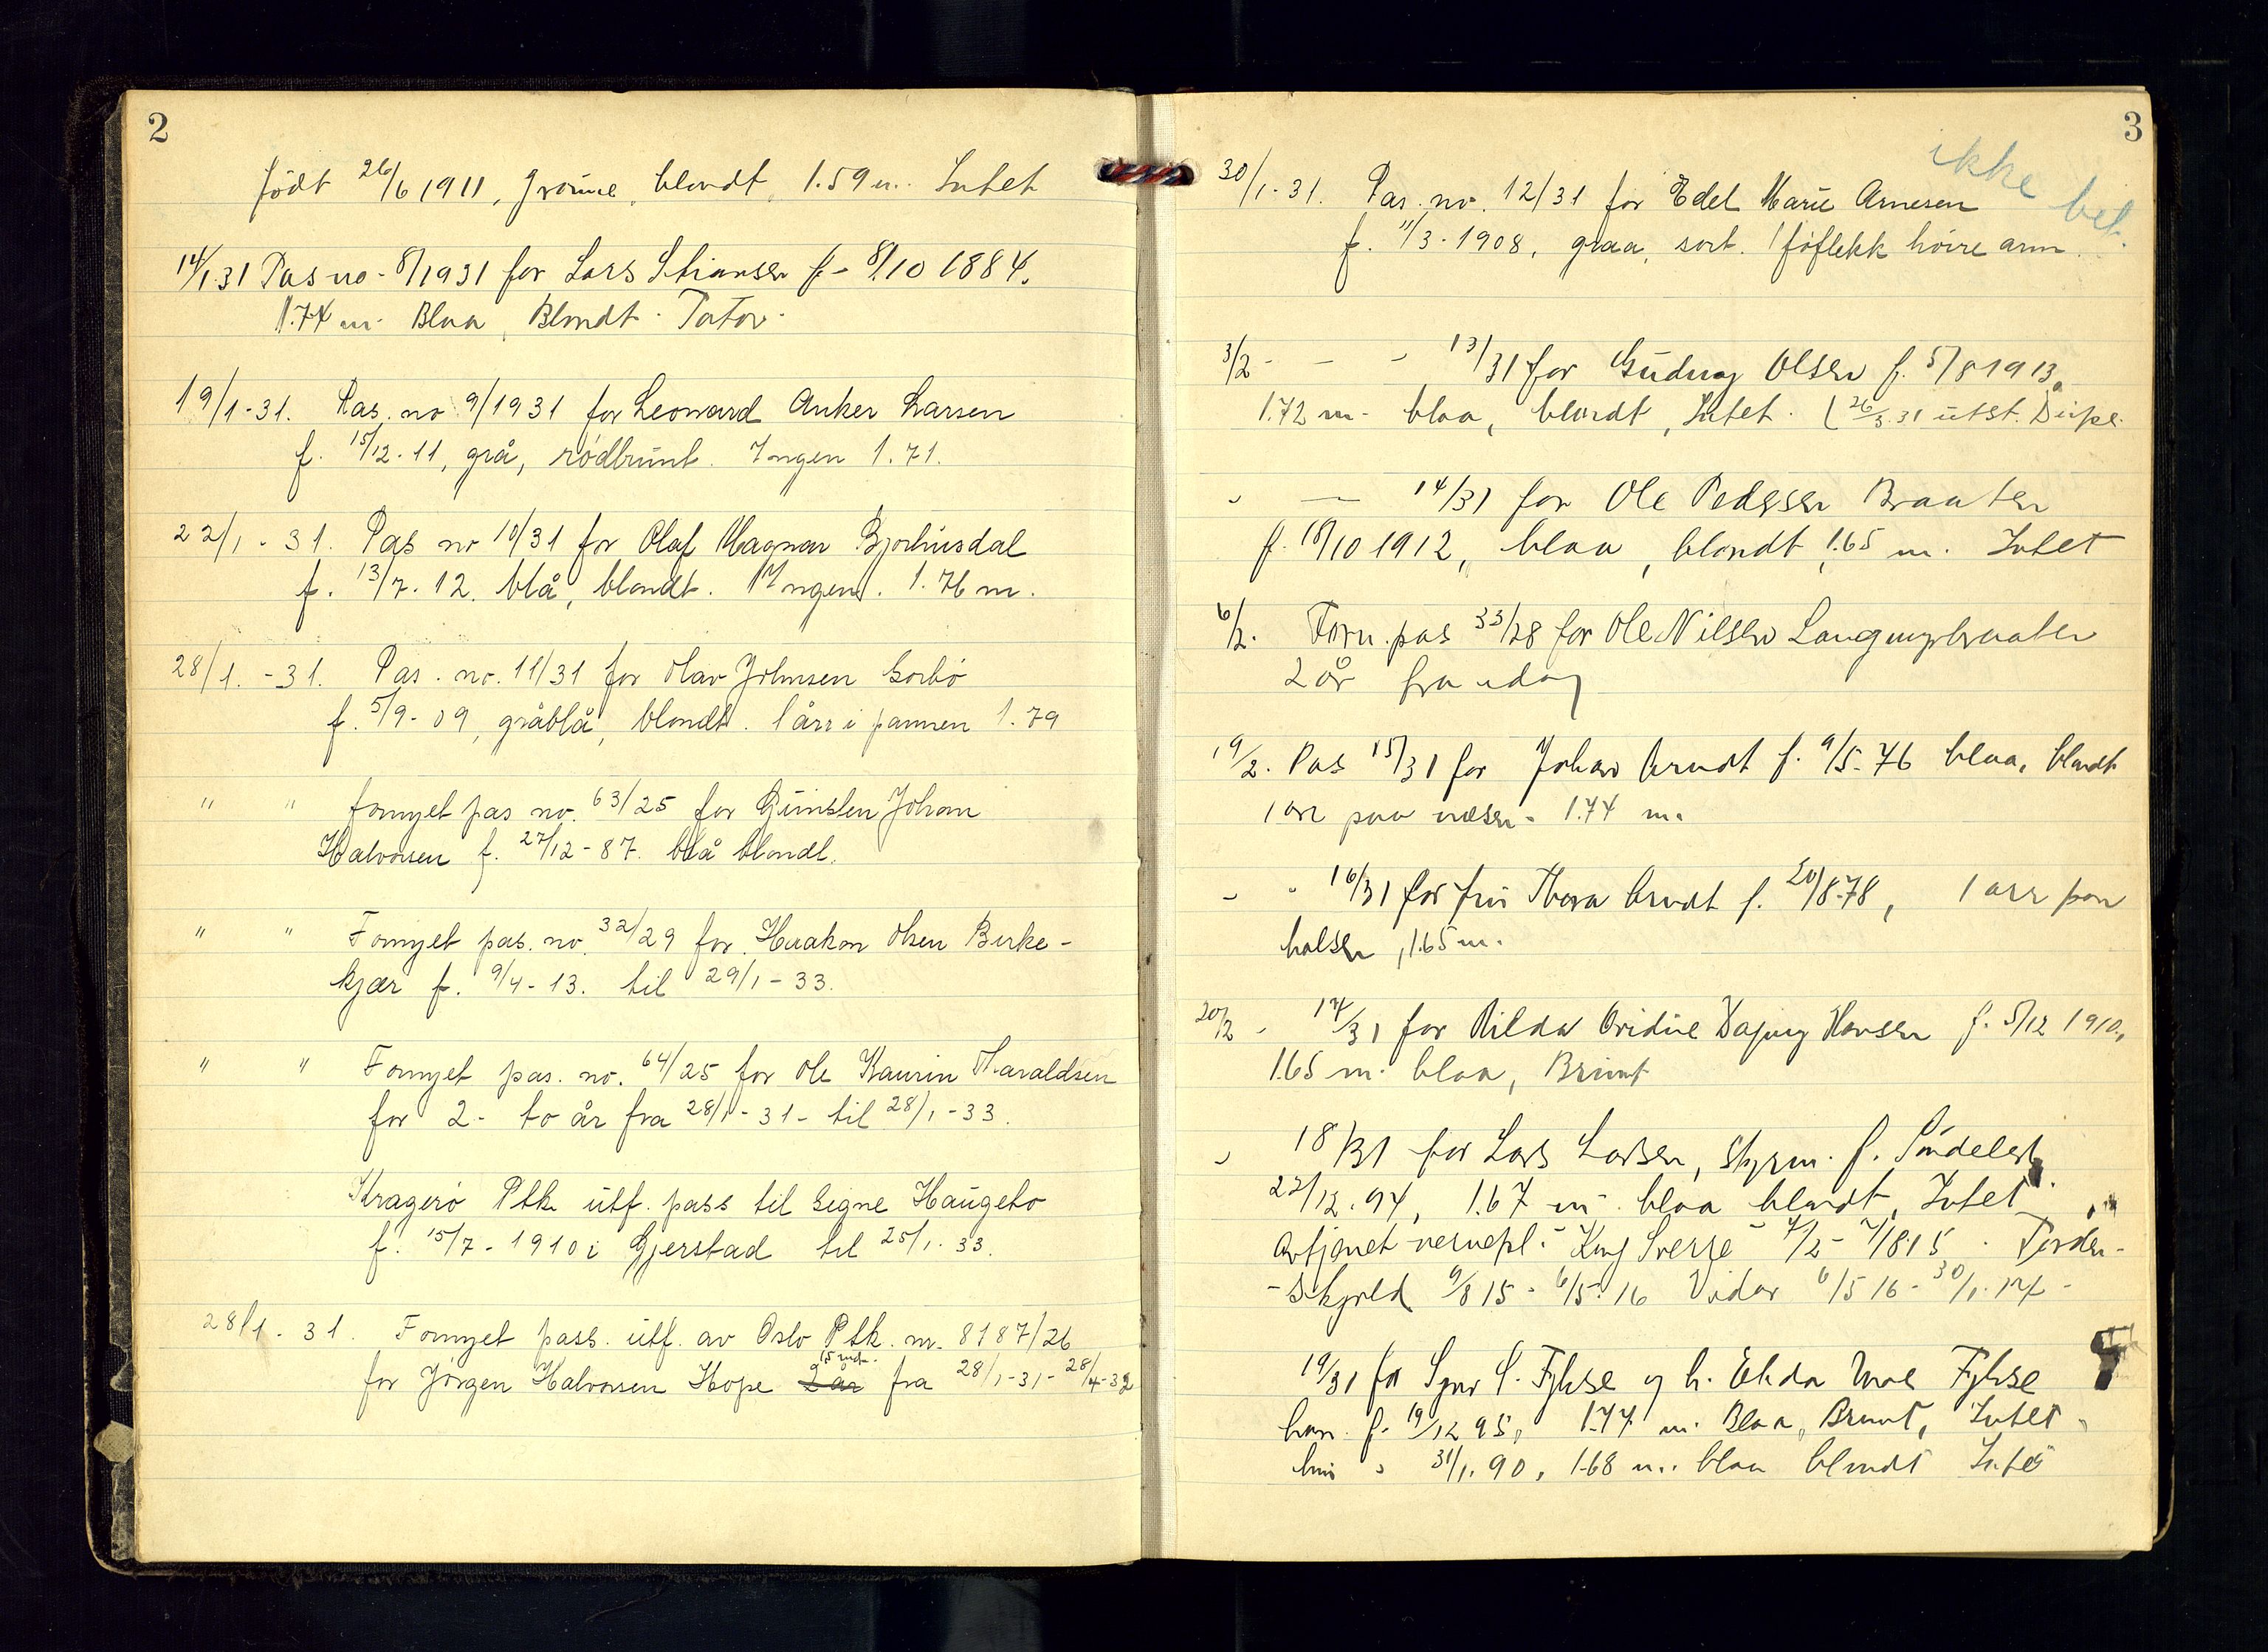 2
födt 26/6 1911, grønne, blondt, 1.59 m. Intet
14/1.31 Pas no - 8/1931 for Lars Stiansen f - 8/10 1884.
1.74 m. Blaa, Blondt. Tator.
19/1-31. Pas. no 9/1931 for Leonard Anker Larsen
f. 15/12-11, grå, rödbrunt. Ingen 1.71.
22/1 - 31. Pas no 10/31 for Olaf Magnar Bjorhusdal
f. 13/7-12. blå, blondt. Ingen. 1.76 m.
28/1. -31. Pas. no. 11/31 for Olav Johnsen Garbö
f. 5/9-09, gråblå, blondt. 1 arr i pannen 1.79
" " fornyet pas no. 63/25 for Gunsten Johan
Halvorsen f. 27/12-87. blå blondt.
" " Fornyet pas. no. 32/29 for Haakon Olsen Birke-
kjær f. 9/4-13. til 29/1-33.
" " Fornyet pas. no. 64/25 for Ole Kaurin Haraldsen
for 2 - to år fra 28/1-31- til 28/1-33.
Kragerö Ptk. utf. pass til Signe Haugebo
f. 15/7-1910 i Gjerstad til 25/1.33.
28/1-31. Fornyet pass. utf. av Oslo Ptk. nr. 8187/26
15 md.
for Jörgen Halvorsen Hope 2 år fra 28/1-31-28/4-32
3
ikke bet.
30/1-31. Pas. no. 12/31 for Edel Marie Arnesen
f. 11/3-1908, graa, sort. 1 föflekk höire arm.
3/2 - - - 13/31 for Gudrun Olsen f. 5/8 1913.
1.72 m. blaa, blondt, Intet. (26/3.31 utst.
" — 14/31 for Ole Pedersen Braaten
f. 18/10 1912, blaa, blondt, 1.65 m. Intet
6/2. Forn. pas 33/28 for Ole Nilsen Langmyrbraaten
2 år fra idag
19/2. Pas 15/31 for Johan Arndt f. 9/5-76 blaa, blondt
1 arr paa næsen - 1.74 m.
" " 16/31 for fru Thora Arndt f. 20/8-78, 1 arr paa
halsen, 1.65 m.
20/2 - 17/31 for Hansen f. 5/12 1910.
1.65 m. blaa, Brunt
" 18/31 for Lars Larsen, styrm. f. Söndeled
22/12.94, 1.67 m. blaa blondt, Intet.
Avtjent vernepl. "Kong Sverre" 4/2 - 7/8 15. Torden-
-skjold 9/8 15 - 6/5 16 Vidar 6/5 16 - 30/1.17 -
19/31 for Fykse og h. Fykse
han f. 19/12 95, 1.77 m. Blaa, Brunt, Intet.
hun " 31/1.90, 1.68 m. blaa blondt Intet